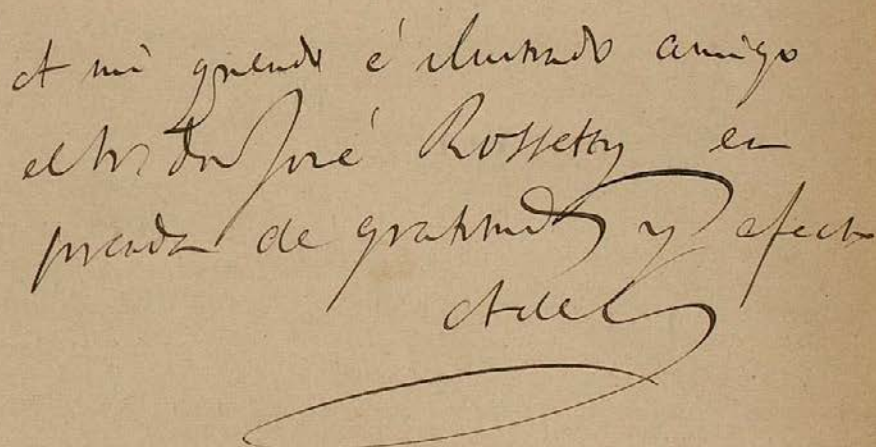 A mi querido é ilustrado amigo
el Sr. Don José Rossetty en
prenda de gratitud y afecto